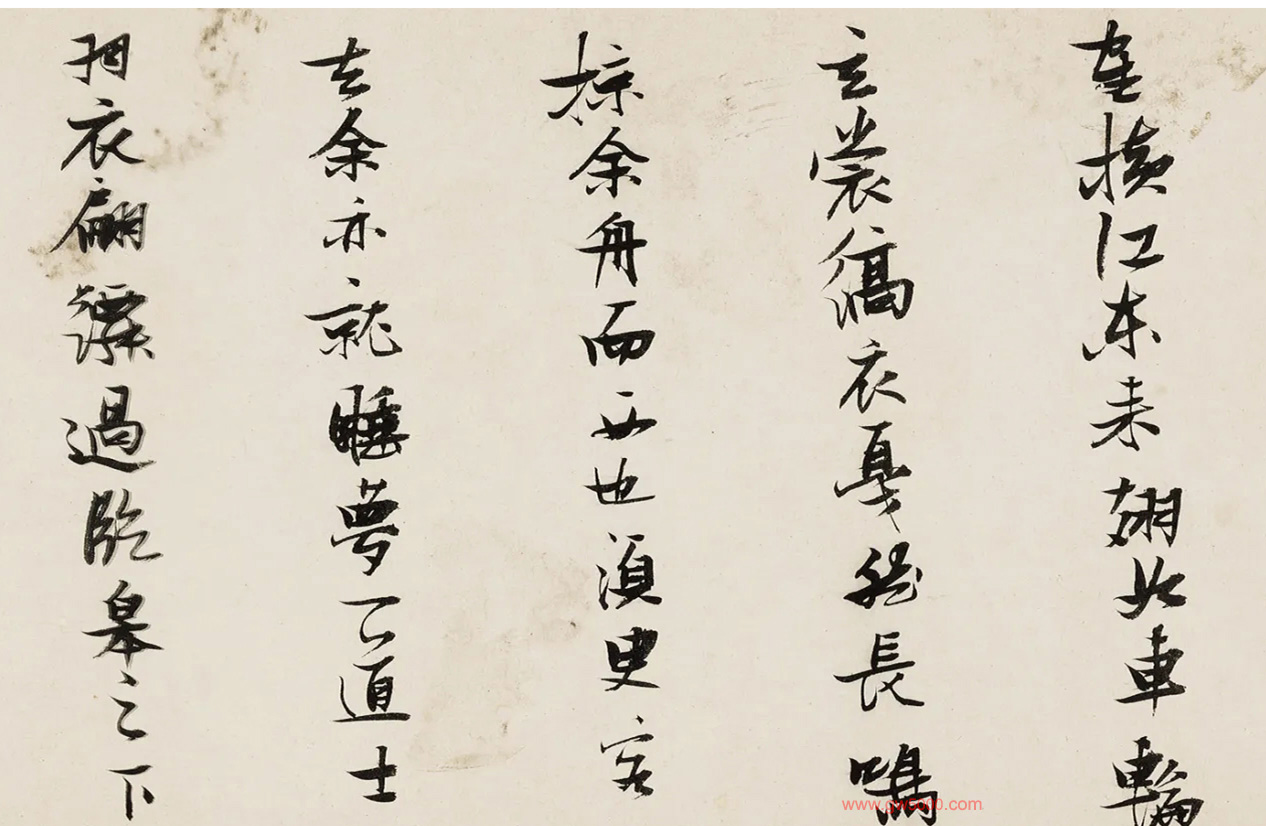 隺橫江東来翅如車輪
玄裳縞衣戛然長鳴
掠余舟而西也須臾客
去余亦就睡夢一道士
羽衣翩躚過臨皋之下
www.gw5000.com